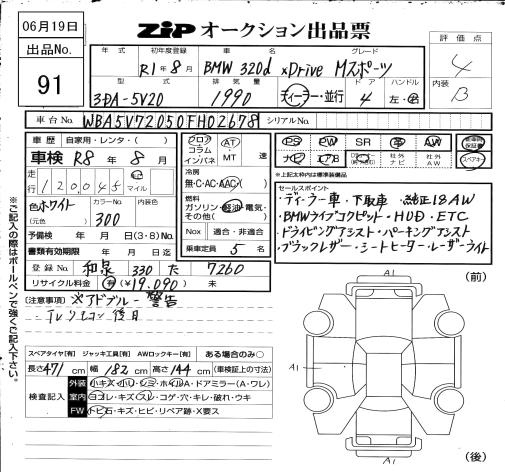 06月19日
ZIP オークション出品票
出品No.
91
年式 初年度登録 車名 グレード
R1年8月 BMW 320d xDrive Mスポーツ
型式 排気量 ドア ハンドル
3DA-5V20 1990 ディーラー・並行 4 左・右
評価点
4
内装
B
車台No. WBA5V72050FH02678 シリアルNo.
車歴 自家用・レンタ・( )
車検 R8年8月
走行 120,045 km マイル
色 ホワイト カラーNo. 300 内装色
(元色)
予備検 年 月 日(3・8)No.
書類有効期限 年 月 日迄
登録No. 和泉 330 た 7260
リサイクル料金 有(¥19,090) 未
フロア コラム インパネ AT MT 速
冷房 無・C・AC・AAC
燃料 ガソリン・軽油・電気・その他( )
Nox 適合・非適合
乗車定員 5 名
PS PW SR 革 AW
ナビ エアB 社外ナビ 社外AW スペアキー
※上記太枠内は標準装備品
セールスポイント
・ディーラー車・下取車・純正18AW
・BMWライブコクピット・HUD・ETC
・ドライビングアシスト・パーキングアシスト
・ブラックレザー・シートヒーター・レーザーライト
(注意事項) ※アドブルー警告
・TVリモコン後日
スペアタイヤ【有】 ジャッキ工具【有】 AWロックキー【有】 ある場合のみ○
長さ471cm 幅182cm 高さ144cm (車検証上の寸法)
検査記入
外装 小キズ・小凹・シミ・ホイルA・ドアミラー(A・ワレ)
室内 ヨゴレ・キズ・スレ・コゲ・穴・キレ・破れ・ウキ
FW トビ石・キズ・ヒビ・リペア跡・X要ス
※ご記入の際はボールペンで強くご記入下さい。
A1
(前)
A1
A1
(後)